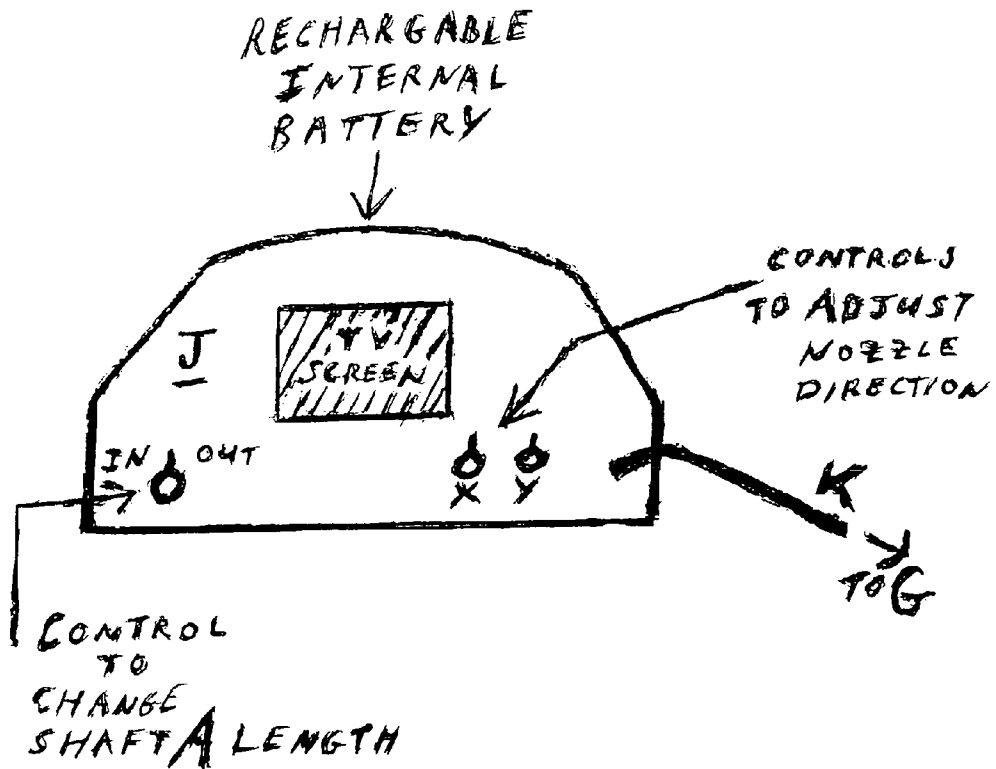 RECHARGABLE
INTERNAL
BATTERY
CONTROLS
TO ADJUST
NOZZLE
DIRECTION
J
TV
SCREEN
IN OUT
X Y
K
TO G
CONTROL
TO
CHANGE
SHAFT A LENGTH